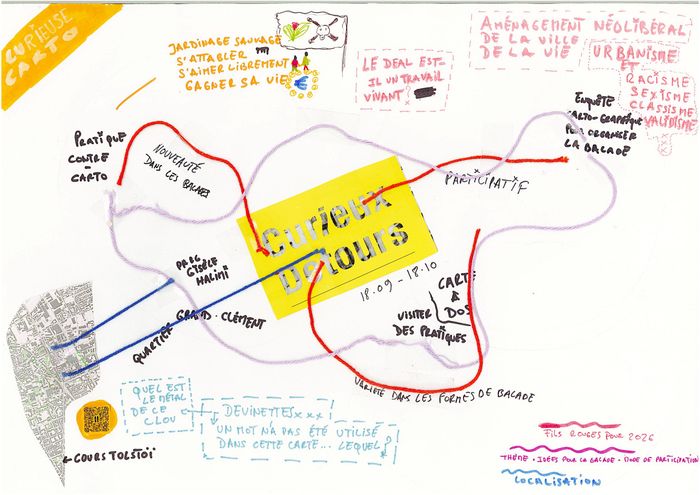 CURIEUSE
CARTO
JARDINAGE SAUVAGE
S'ATTABLER
S'AIMER LIBREMENT
GAGNER SA VIE
€
LE DEAL EST-
IL UN TRAVAIL
VIVANT?
AMÉNAGEMENT NÉOLIBÉRAL
DE LA VILLE
DE LA VIE
URBANISME
ET
RACISME
SEXISME
CLASSISME
VALIDISME
ENQUÊTE
CARTO-GRAPHIQUE
POUR ORGANISER
LA BALADE
PRATIQUE
CONTRE-
CARTO
NOUVEAUTÉ
DANS LES BALADES
PARTICIPATIF
Curieux
Détours
18.09 - 18.10
PROG
GISÈLE
HALIMI
QUARTIER GRAND-CLÉMENT
CARTE
À
DOS
VISITER
DES PRATIQUES
VARIÉTÉ DANS LES FORMES DE BALADE
QUEL EST
LE MÉTAL
DE CE
CLOU
DEVINETTES xxx
UN MOT N'A PAS ÉTÉ UTILISÉ
DANS CETTE CARTE... LEQUEL?
← COURS TOLSTOÏ
FILS ROUGES POUR 2026
THÈME · IDÉES POUR LA BALADE · MODE DE PARTICIPATION
LOCALISATION